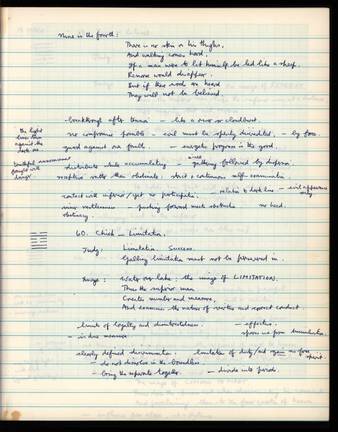 Nine in the fourth:
There is no skin on his thighs,
And walking comes hard.
If a man were to let himself be led like a sheep,
Remorse would disappear.
But if these words are heard
They will not be believed.
breakthrough after tension - like a river or cloudburst.
no compromise possible - evil must be openly discredited - by force.
guard against own faults - energetic progress in the good.
distribute while accumulating - gathering followed by dispersion.
receptive rather than obstinate - strict & continuous self-examination.
contact with inferior / yet no participation.
inner restlessness - pushing forward meets obstacles
obstinacy
60. Chieh - Limitation.
Judg: Limitation. Success.
Galling limitation must not be persevered in.
Image: Water over lake: the image of LIMITATION.
Thus the superior man
Creates number and measure,
And examines the nature of virtue and correct conduct.
limits of loyalty and disinterestedness. - effective.
- in due measure
clearly defined discrimination. limitation of duty/
- do not dissolve in the boundless
- bring the separate together. - divide into periods.